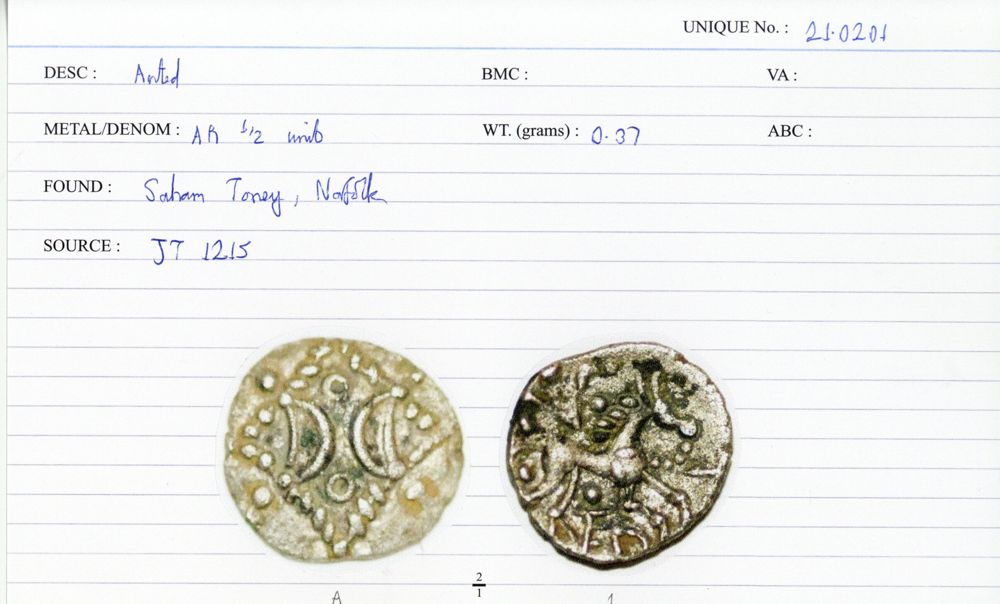 UNIQUE No. : 21.0201
DESC : Anted BMC : VA :
METAL/DENOM : AR 1/2 unit WT. (grams) : 0.37 ABC :
FOUND : Saham Toney, Norfolk
SOURCE : JT 1215
2/1
A 1